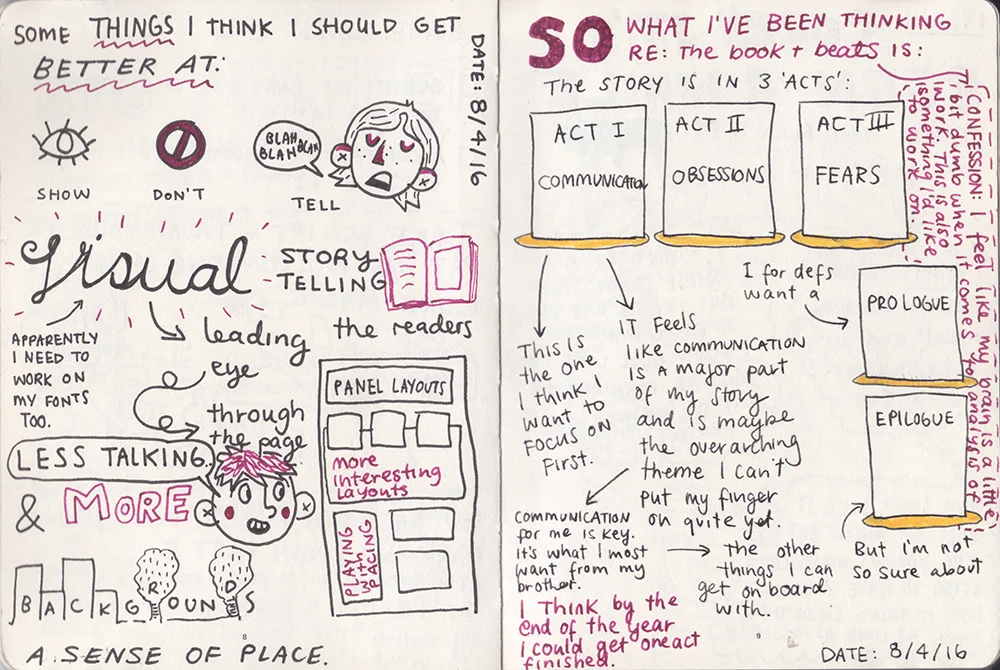 SOME THINGS I THINK I SHOULD GET
BETTER AT:
DATE: 8/4/16
SHOW
DON'T
BLAH
BLAH BLAH
TELL
Visual
STORY
TELLING
APPARENTLY
I NEED TO
WORK ON
MY FONTS
TOO.
leading
the readers
eye
through
the page
PANEL LAYOUTS
more
interesting
layouts
PLAYING
with
SPACING
LESS TALKING
& MORE
BACKGROUNDS
A SENSE OF PLACE.
SO WHAT I'VE BEEN THINKING
RE: The book + beats IS:
The STORY IS IN 3 'ACTS':
ACT I
COMMUNICATION
ACT II
OBSESSIONS
ACT III
FEARS
CONFESSION: I feel like my brain is a little
bit dumb when it comes to analysis of
work. This is also
something I'd like
to work on.
I for defs
want a
PROLOGUE
EPILOGUE
But I'm not
so sure about
This is
the one
I think I
want to
FOCUS ON
FIRST.
IT Feels
like COMMUNICATION
IS A major part
of my story
and is maybe
the overarching
theme I can't
put my finger
on quite yet.
COMMUNICATION
for me is key.
it's what I most
want from my
brother.
the other
things I can
get on board
with.
I Think by the
end of the year
I could get one act
finished.
DATE: 8/4/16